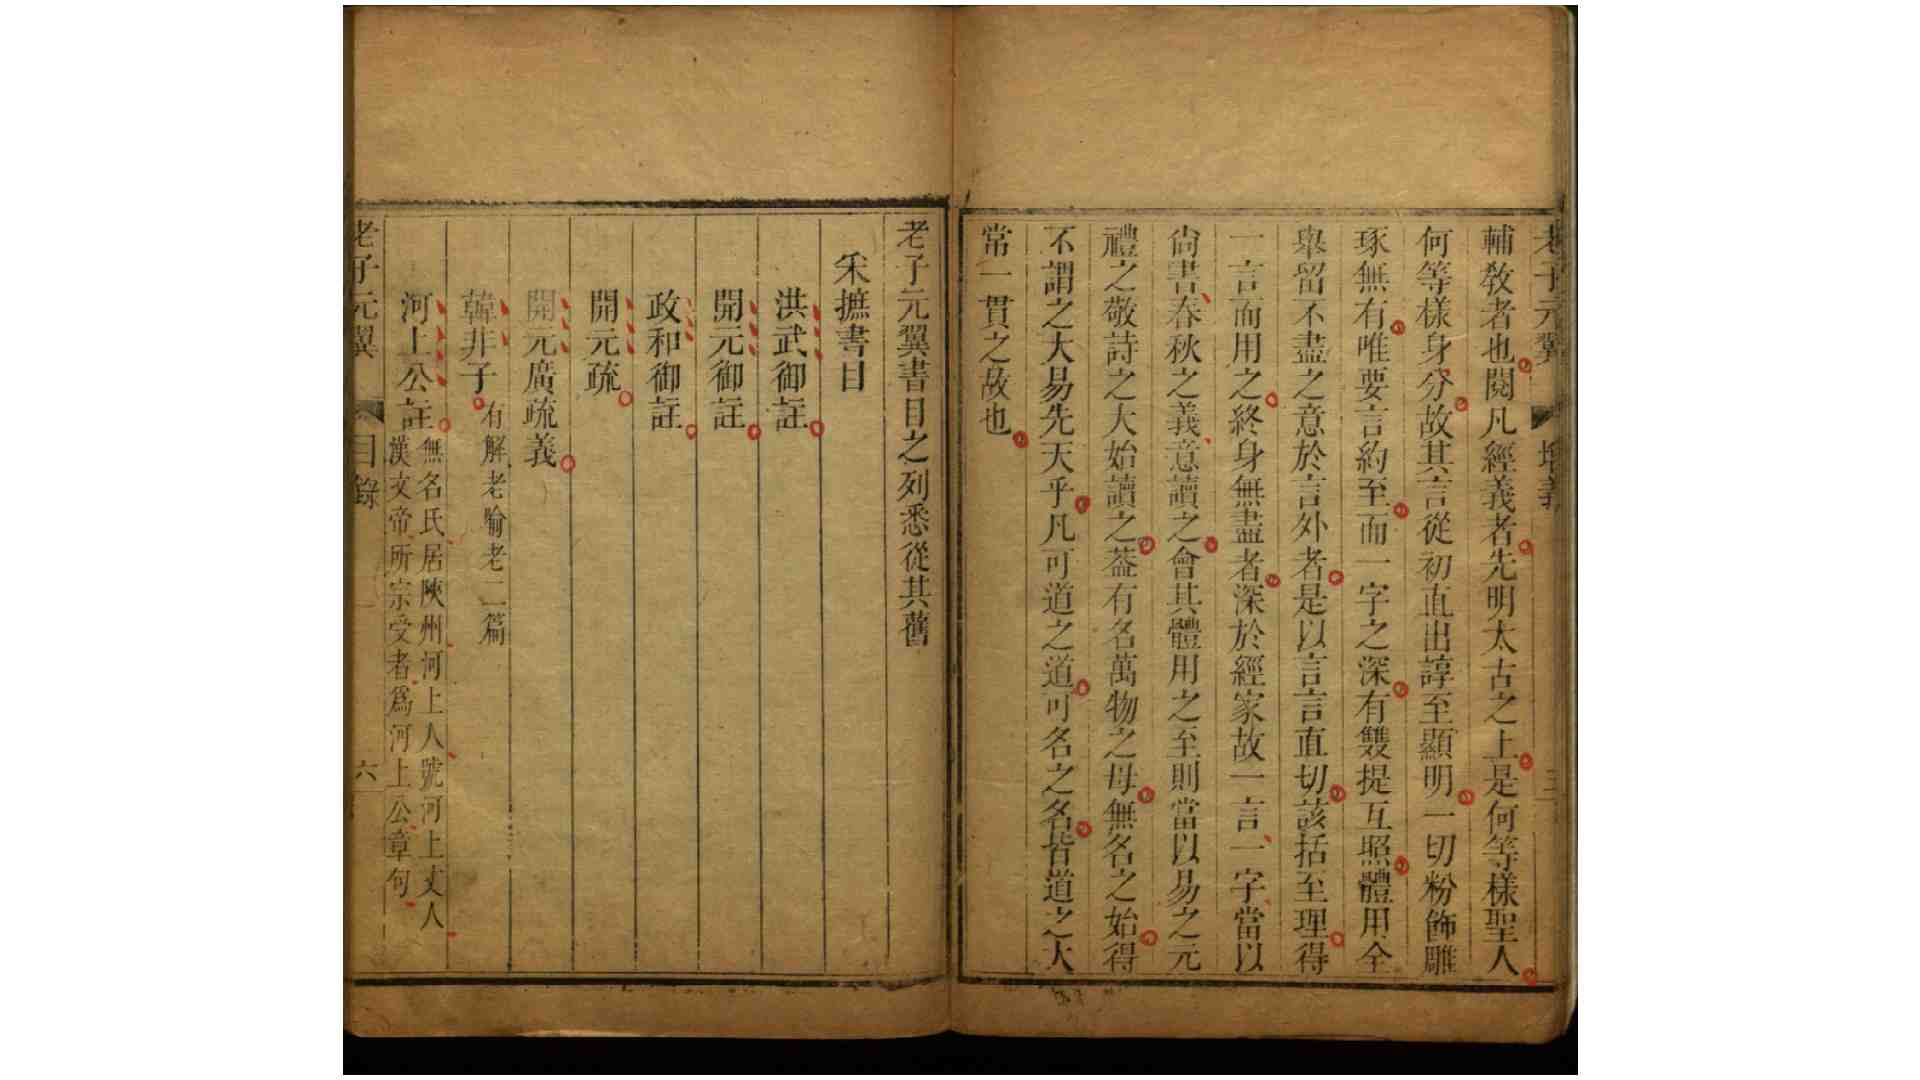 老子元翼 增義 三
輔敎者也閱凡經義者先明太古之上是何等樣聖人
何等樣身分故其言從初直出諄至顯明一切粉飾雕
琢無有唯要言約至而一字之深有雙提互照體用全
舉留不盡之意於言外者是以言言直切該括至理得
一言而用之終身無盡者深於經家故一言一字當以
尙書春秋之義意讀之會其體用之至則當以易之元
禮之敬詩之大始讀之葢有名萬物之母無名之始得
不謂之大易先天乎凡可道之道可名之名皆道之大
常一貫之故也
老子元翼書目之列悉從其舊
采摭書目
洪武御註
開元御註
政和御註
開元疏
開元廣疏義
韓非子 有解老喻老二篇
河上公註 無名氏居陝州河上人號河上丈人
漢文帝所宗受者爲河上公章句
老子元翼 目錄 六